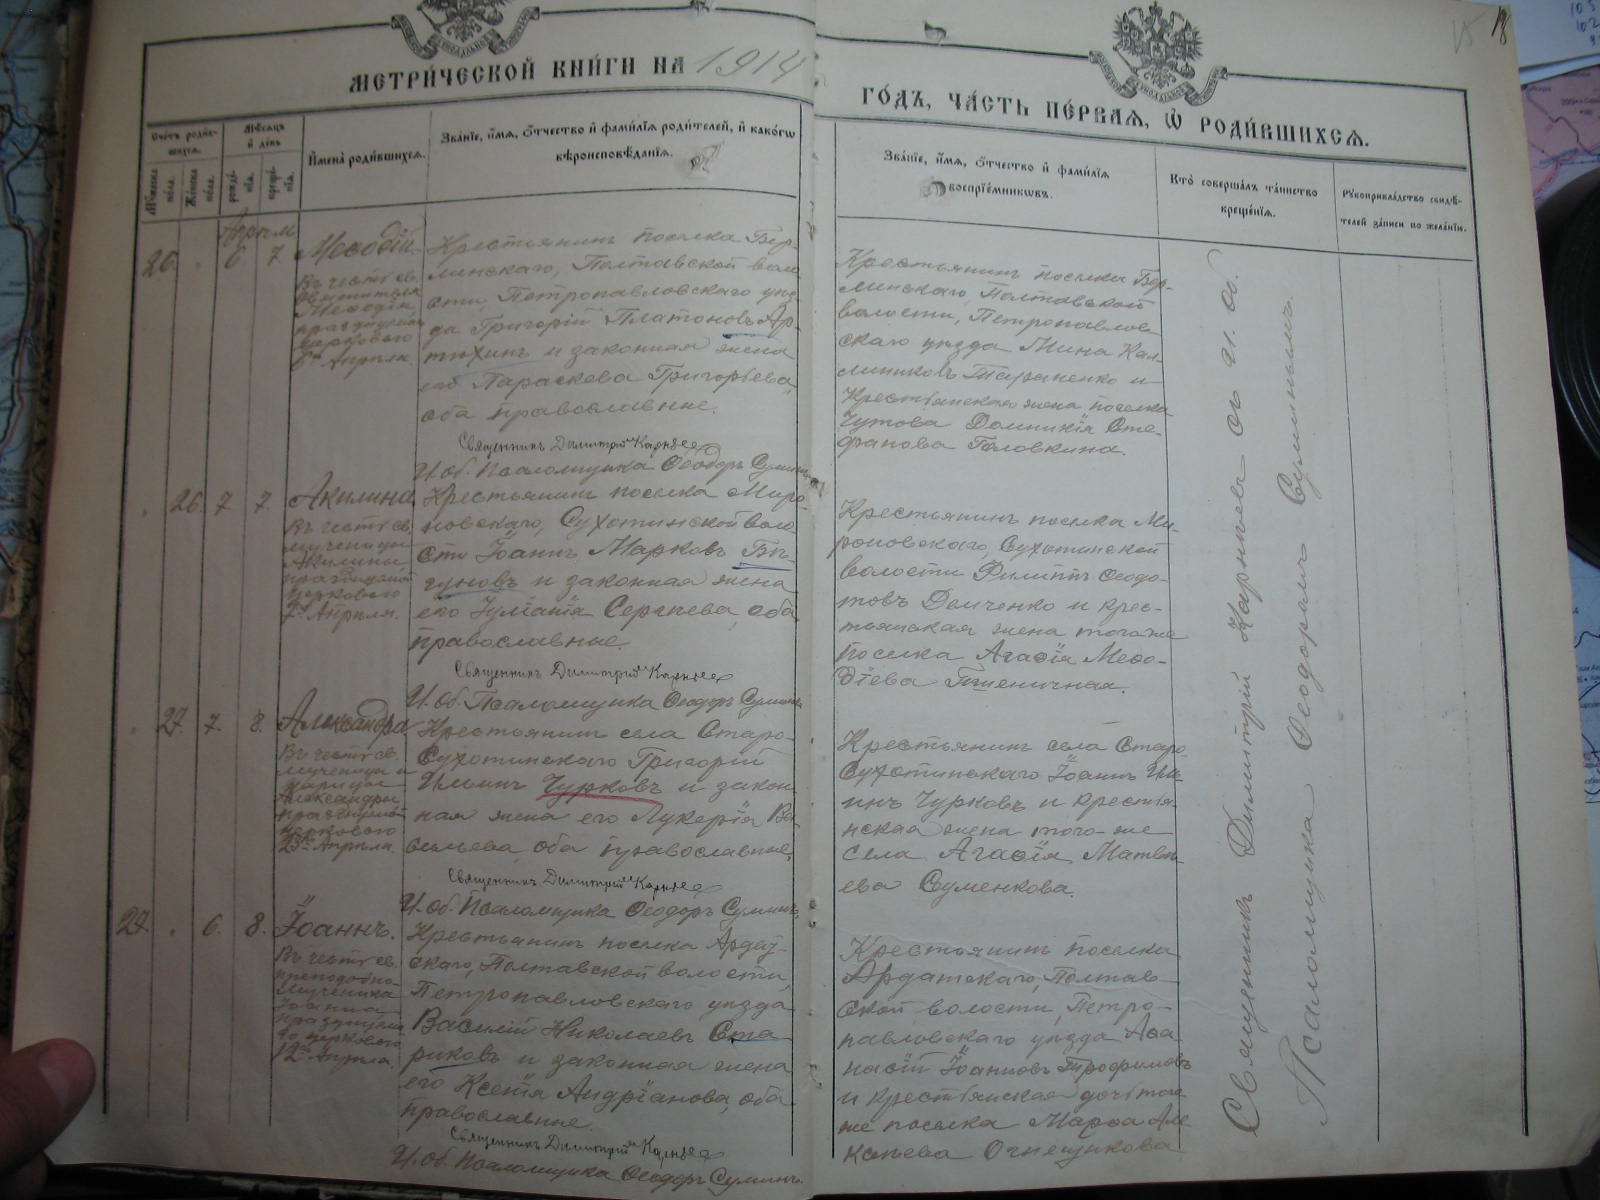 МЕТРИ́ЧЕСКОЙ КНИ́ГИ НА 1914
ГО́ДЪ, ЧА́СТЬ ПЕ́РВАѦ, Ѡ РОДИ́ВШИХСѦ.
18
15
Сче́тъ роди́в-
шихсѧ.
Мѣ́сѧцъ
и҆ де́нь
И҆мена̀ роди́вшихсѧ.
Зва́нїе, и҆́мѧ, ѻ҆́тчество и҆ фами́лїѧ роди́телей, и҆ како́гѡ
вѣроисповѣ́данїѧ.
Зва́нїе, и҆́мѧ, ѻ҆́тчество и҆ фами́лїѧ
воспрїе́мникѡвъ.
Кто̀ соверша́лъ та́инство
креще́нїѧ.
Рꙋкоприкла́дство свидѣ́-
телей за́писи по жела́нїю.
Мꙋ́жеска
по́ла.
Же́нска
по́ла.
рожде́-
нїѧ.
креще́-
нїѧ.
Апрѣль
26. 6. 7. Меѳодій.
Въ честь св.
святителя
Меѳодія,
празднуемаго
церковью
6го Апрѣля.
Крестьянинъ поселка Бер-
линскаго, Полтавской воло-
сти, Петропавловскаго уѣз-
да Григорій Платоновъ Ар-
тюхинъ и законная жена
его Параскева Григорьева,
оба православные.
Священникъ Димитрій Карнѣевъ
И. Об. Псаломщика Ѳеодоръ Сулинъ
Крестьянинъ поселка Бер-
линскаго, Полтавской
волости, Петропавлов-
скаго уѣзда Мина Кал-
линиковъ Тараненко и
Крестьянская жена поселка
Чутова Домникія Сте-
фанова Головкина.
26. 7. 7. Акилина
Въ честь св.
мученицы
Акилины
празднуемой
церковью
7го Апрѣля.
Крестьянинъ поселка Миро-
новскаго, Сухотинской воло-
сти Іоаннъ Марковъ Бѣ-
гуновъ и законная жена
его Іуліанія Сергѣева, оба
православные.
Священникъ Димитрій Карнѣевъ
И. Об. Псаломщика Ѳеодоръ Сулинъ
Крестьянинъ поселка Ми-
роновскаго, Сухотинской
волости Филиппъ Ѳеодо-
товъ Демченко и крес-
тьянская жена того же
поселка Агаѳія Меѳо-
діева Пшеничная.
27. 7. 8. Александра
Въ честь св.
мученицы и
царицы
Александры
празднуемой
церковью
23го Апрѣля.
Крестьянинъ села Старо-
Сухотинскаго Григорій
Ильинъ Чурковъ и закон-
ная жена его Лукерія Ва-
сильева, оба православные.
Священникъ Димитрій Карнѣевъ
И. Об. Псаломщика Ѳеодоръ Сулинъ.
Крестьянинъ села Старо
Сухотинскаго Іоаннъ Иль-
инъ Чурковъ и крестья-
нская жена того-же
села Агаѳія Матвѣ-
ева Суменкова.
27. 6. 8. Іоаннъ.
Въ честь св.
преподобно-
мученика
Іоанна
празднуема-
го церковью
12го Апрѣля.
Крестьянинъ поселка Ардат-
скаго, Полтавской волости,
Петропавловскаго уѣзда
Василій Николаевъ Ста-
риковъ и законная жена
его Ксенія Андріанова, оба
православные.
Священникъ Димитрій Карнѣевъ
И. Об. Псаломщика Ѳеодоръ Сулинъ.
Крестьянинъ поселка
Ардатскаго, Полтав-
ской волости, Петро-
павловскаго уѣзда Аѳа-
насій Іоанновъ Трофимовъ
и крестьянская дочь того
же поселка Марѳа Але-
ксѣева Огнещикова
Священникъ Димитрій Карнѣевъ съ и. об.
Псаломщика Ѳеодоромъ Сулинымъ.